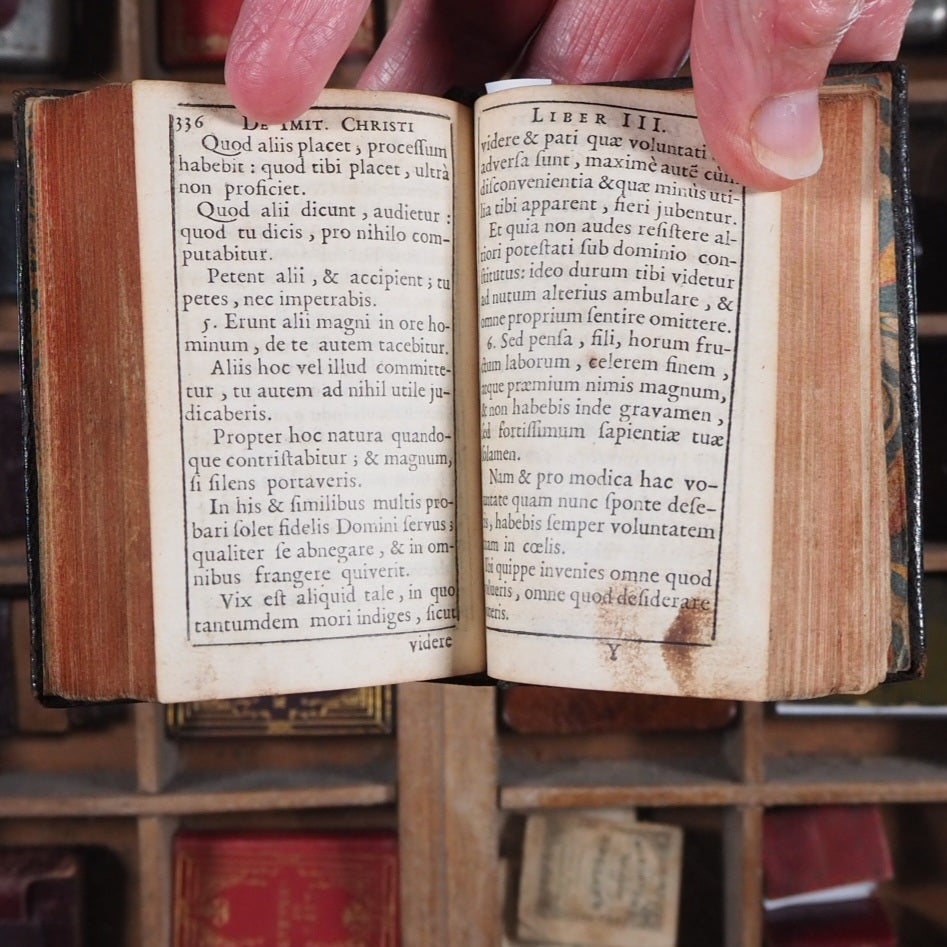 336 De Imit. Christi
Quod aliis placet ; proceſſum
habebit : quod tibi placet , ultrà
non proficiet.
Quod alii dicunt , audietur :
quod tu dicis , pro nihilo com-
putabitur.
Petent alii , & accipient ; tu
petes , nec impetrabis.
5. Erunt alii magni in ore ho-
minum , de te autem tacebitur.
Aliis hoc vel illud committe-
tur , tu autem ad nihil utile ju-
dicaberis.
Propter hoc natura quando-
que contriſtabitur ; & magnum,
ſi ſilens portaveris.
In his & ſimilibus multis pro-
bari ſolet fidelis Domini ſervus ;
qualiter ſe abnegare , & in om-
nibus frangere quiverit.
Vix eſt aliquid tale , in quo
tantumdem mori indiges , ſicut
videre
Liber III.
videre & pati quæ voluntati
adverſa ſunt , maximè autē cùm
diſconvenientia & quæ minùs uti-
lia tibi apparent , fieri jubentur.
Et quia non audes reſiſtere al-
tiori poteſtati ſub dominio con-
ſtitutus: ideo durum tibi videtur
ad nutum alterius ambulare , &
omne proprium ſentire omittere.
6. Sed penſa , fili, horum fru-
ctum laborum , celerem finem ,
atque præmium nimis magnum,
& non habebis inde gravamen ,
ſed fortiſſimum ſapientiæ tuæ
ſolamen.
Nam & pro modica hac vo-
luntate quam nunc ſponte deſe-
habebis ſemper voluntatem
in cœlis.
quippe invenies omne quod
omne quod deſiderare
Y